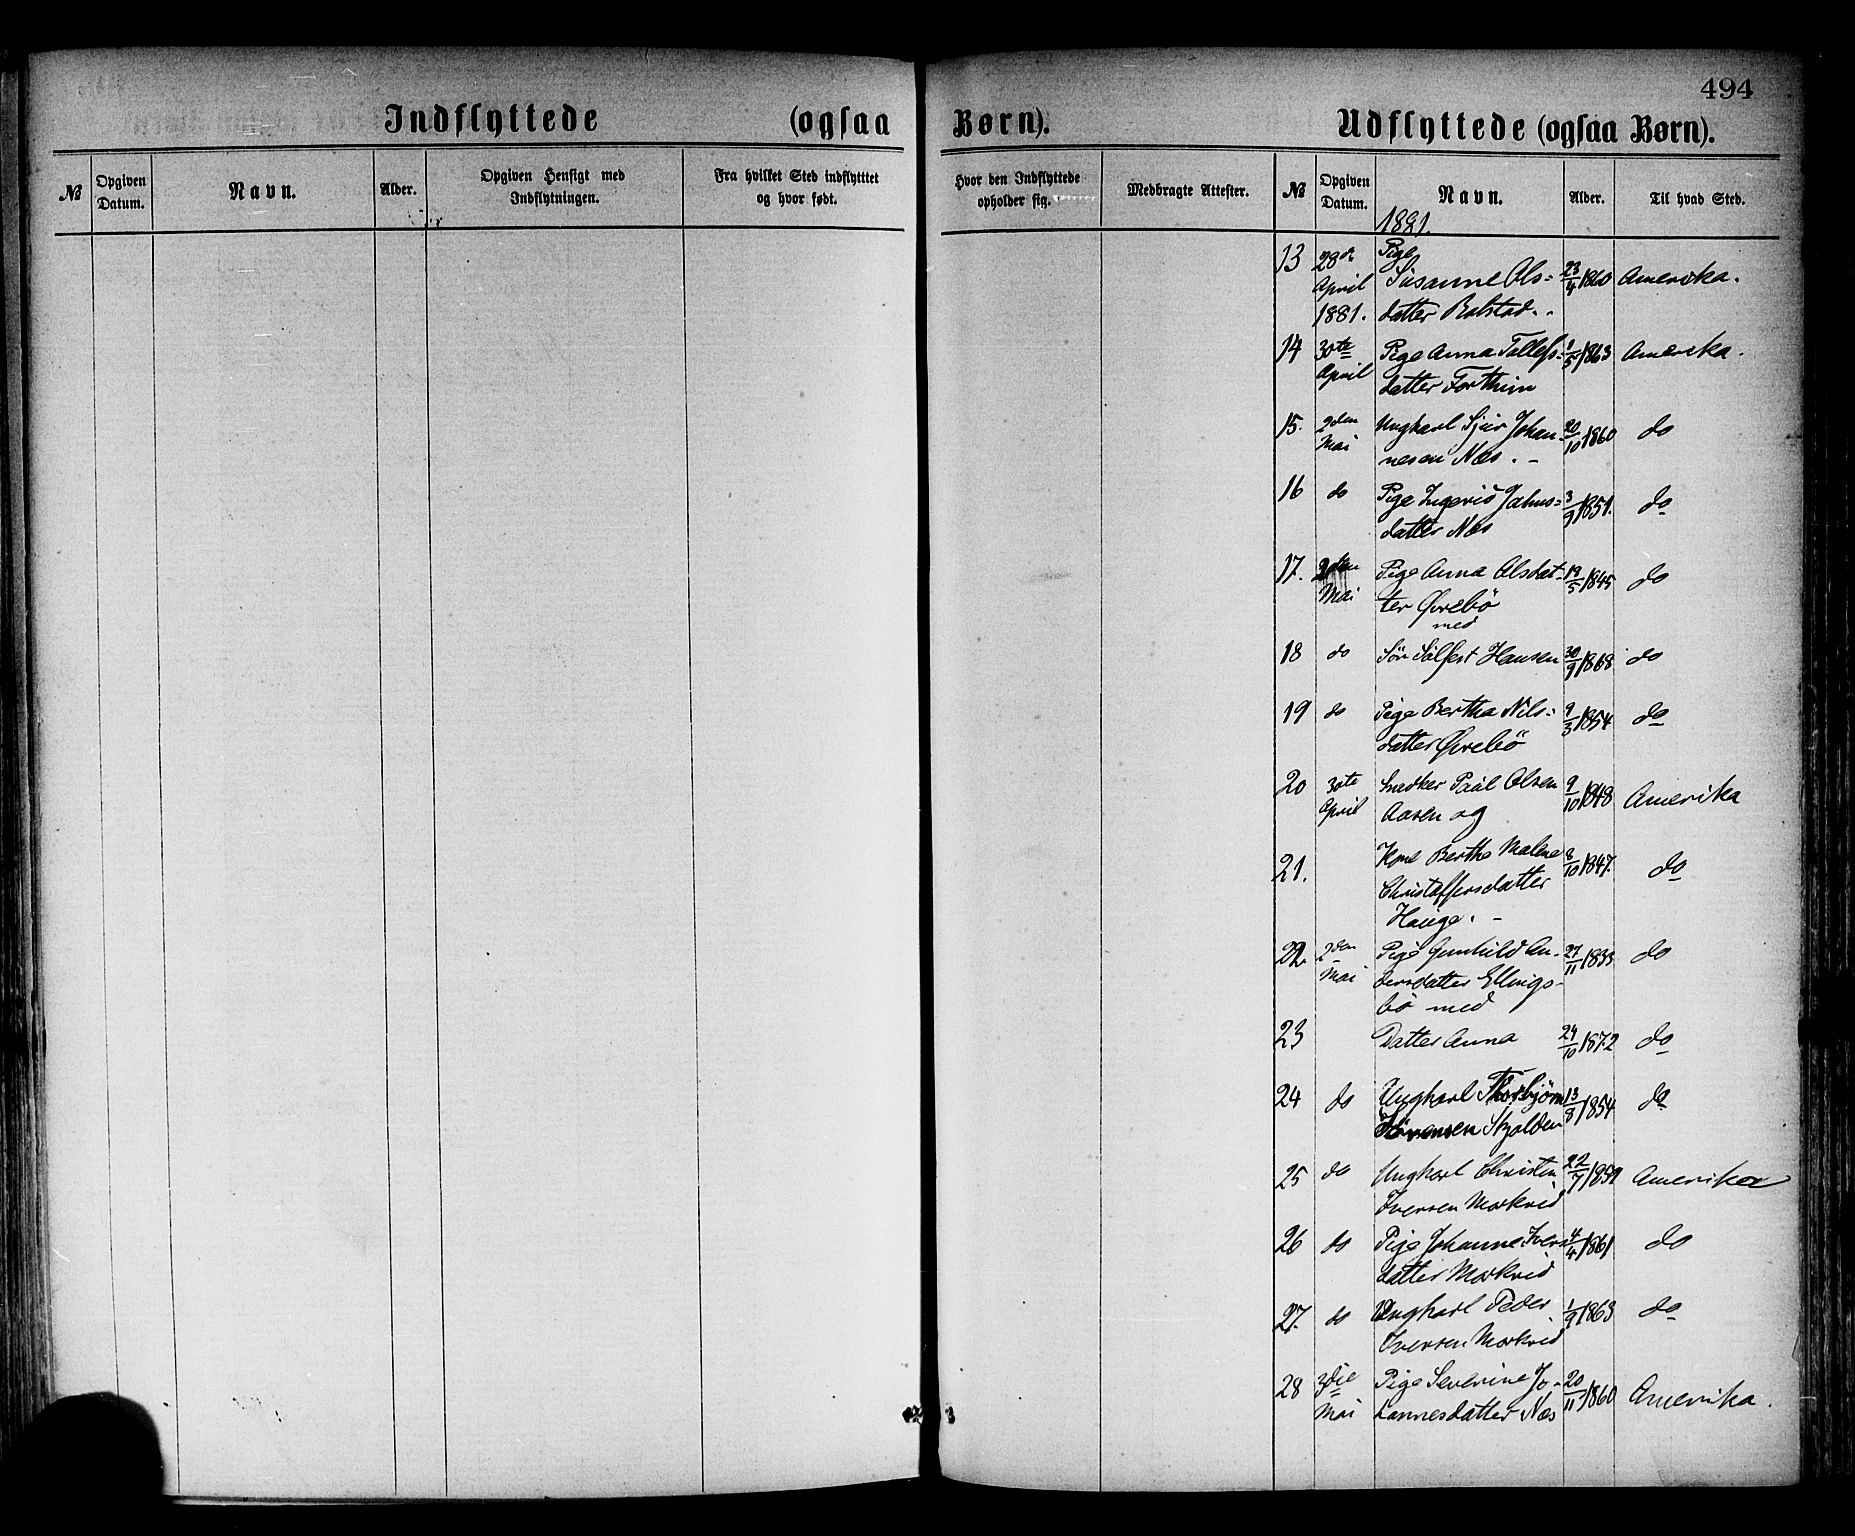 494
Indflyttede (ogsaa Børn).
Udflyttede (ogsaa Børn).
№ Opgiven Datum. Navn. Alder. Opgiven Hensigt med Indflytningen. Fra hvilket Sted indflyttet og hvor født. Hvor den Indflyttede opholder sig. Medbragte Attester. № Opgiven Datum. Navn. Alder. Til hvad Sted.
1881.
13 28de Pige
April Susanne Ols= 23/4 1860 Amerika.
1881. datter Bolstad.
14 30te Pige Anna Tollefs= 1/5 1863 Amerika.
April datter Forthun
15. 2den Ungkarl Sjur Johan- 20/10 1860 do
Mai nesen Næs.
16 do Pige Ingerid Johns= 3/9 1851. do
datter Næs
17. 2den Pige Anna Olsdat- 19/5 1845 do
Mai ter Øvrebö
med
18 do Sön Sölfest Hansen 30/9 1868 do
19 do Pige Bertha Nils= 9/3 1854 do
datter Øvrebö
20 30te Snedker Paal Olsen 9/10 1848 Amerika
April Aasen og
21. Kone Berthe Malene 8/10 1847. do
Christoffersdatter
Hauge.
22. 2den Pige Gunhild An- 27/11 1833 do
Mai dersdatter Ellings-
bö med
23 Datter Anna 24/10 1872 do
24 do Ungkarl Thorbjørn 13/8 1854 do
Sørensen Skjolden
25 do Ungkarl Christen 22/7 1859 Amerika
Iversen Morkrid
26 do Pige Johanne Ivers 4/4 1861 do
datter Morkrid
27. do Ungkarl Peder 1/9 1863 do
Iversen Morkrid
28 3die Pige Severine Jo- 20/11 1860 Amerika.
Mai hannesdatter Næs